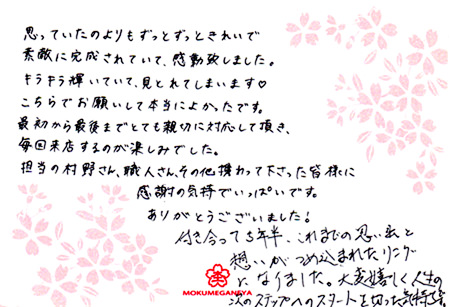 思っていたのよりもずっとずっときれいで
素敵に完成されていて、感動致しました。
キラキラ輝いていて、見とれてしまいます♡
こちらでお願いして本当によかったです。
最初から最後までとても親切に対応して頂き、
毎回来店するのが楽しみでした。
担当の村野さん、職人さん、その他携わって下さった皆様に
感謝の気持でいっぱいです。
ありがとうございました！
付き合って5年半、これまでの思い出と
想いがつめ込まれたリング
になりました。大変嬉しく人生の
次のステップへのスタートを切った気持です。
MOKUMEGANEYA